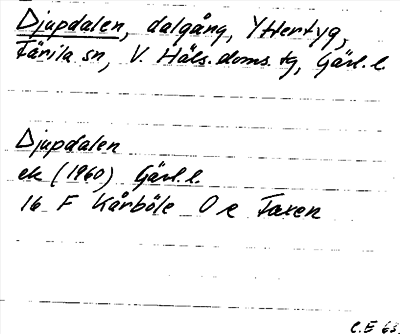 Djupdalen, dalgång, Yttertyg,
Färila sn, V. Häls. doms. tg, Gävl. l.
Djupdalen
ek (1960) Gävl. l.
16 F Kårböle O e Taxen
C.E 63.